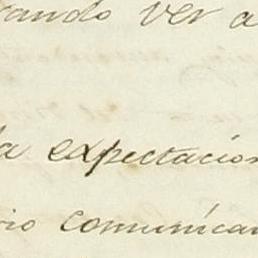 rando ver a
la expectacion
rio comunicar